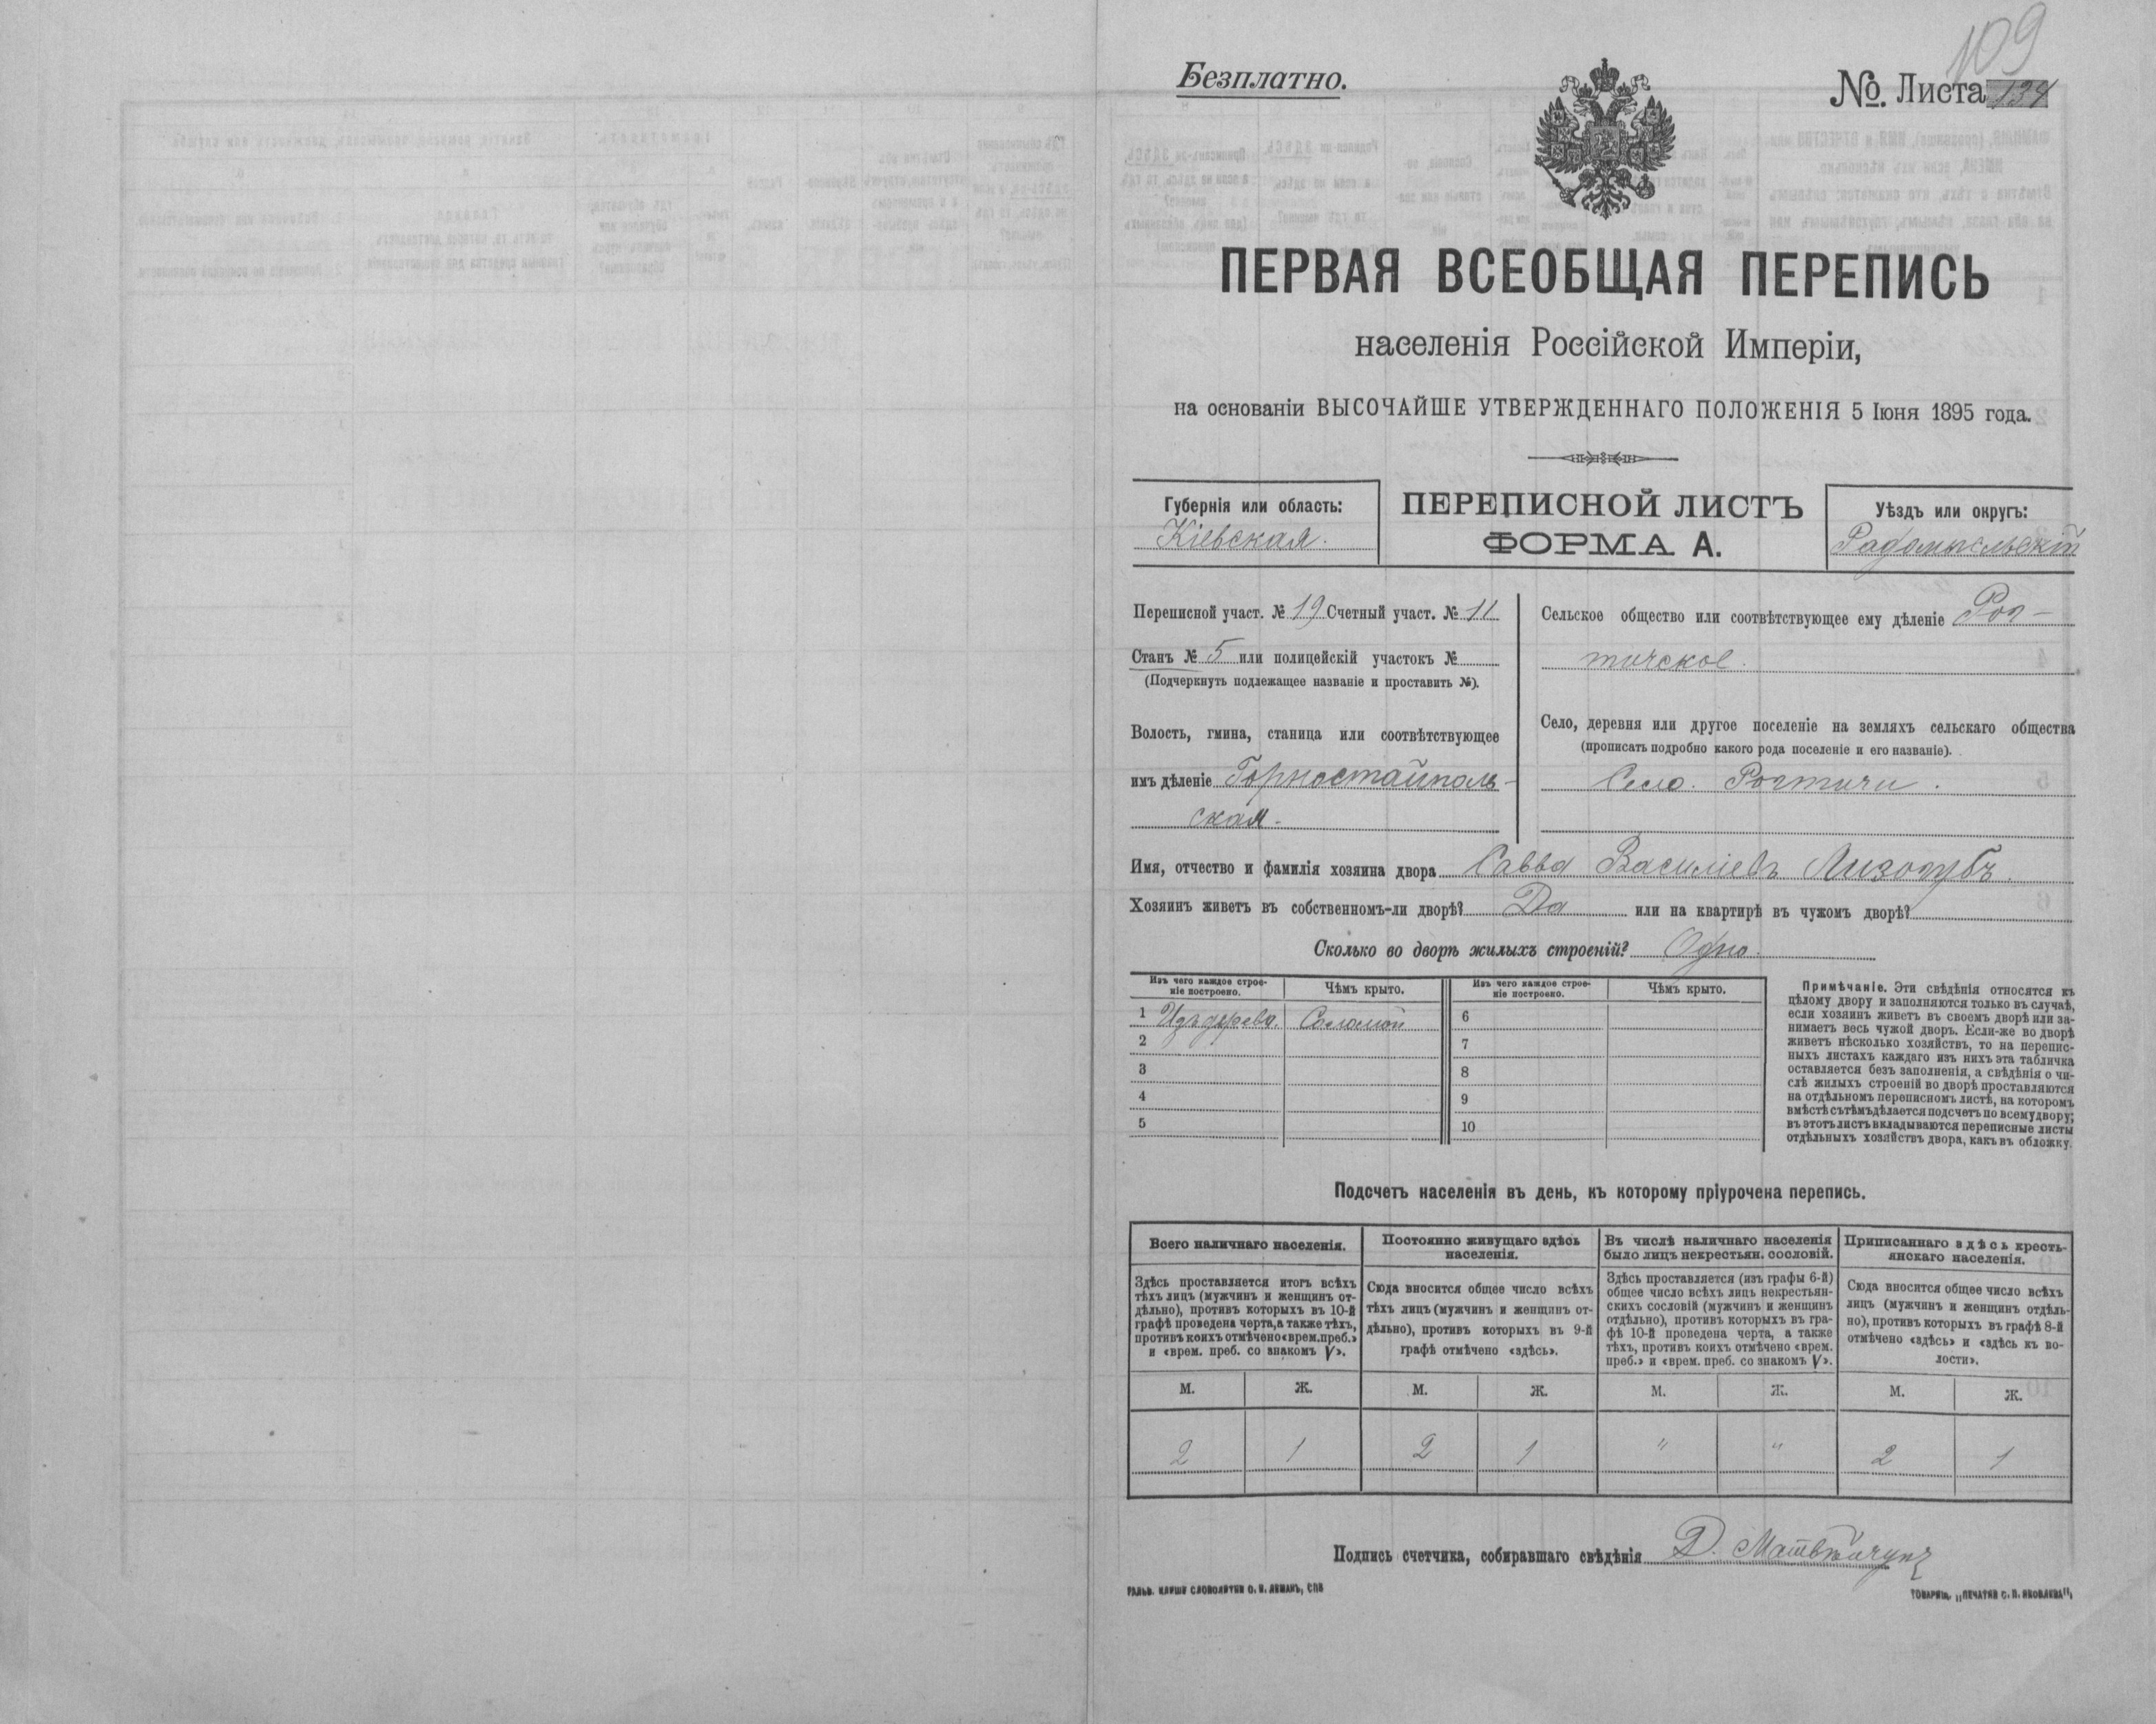 109
Безплатно.
№. Листа 134
ПЕРВАЯ ВСЕОБЩАЯ ПЕРЕПИСЬ
населенія Россійской Имперіи,
на основаніи ВЫСОЧАЙШЕ УТВЕРЖДЕННАГО ПОЛОЖЕНІЯ 5 Іюня 1895 года.
Губернія или область:
Кіевская.
ПЕРЕПИСНОЙ ЛИСТЪ
ФОРМА А.
Уѣздъ или округъ:
Радомысльскій
Переписной участ. № 19 Счетный участ. № 11
Станъ № 5 или полицейскій участокъ №
(Подчеркнуть подлежащее названіе и проставить №).
Волость, гмина, станица или соотвѣтствующее
имъ дѣленіе Горностайполь-
ская.
Сельское общество или соотвѣтствующее ему дѣленіе Рот-
тичское.
Село, деревня или другое поселеніе на земляхъ сельскаго общества
(прописать подробно какого рода поселеніе и его названіе).
Село.
Имя, отчество и фамилія хозяина двора Савва Василіевъ Лизогубъ.
Хозяинъ живетъ въ собственномъ-ли дворѣ? Да или на квартирѣ въ чужомъ дворѣ?
Сколько во дворѣ жилыхъ строеній? Одно.
Изъ чего каждое строе-
ніе построено.
Чѣмъ крыто.
Изъ чего каждое строе-
ніе построено.
Чѣмъ крыто.
1 Изъ дерева. Соломой
2
3
4
5
6
7
8
9
10
Примѣчаніе. Эти свѣдѣнія относятся къ
цѣлому двору и заполняются только въ случаѣ,
если хозяинъ живетъ въ своемъ дворѣ или за-
нимаетъ весь чужой дворъ. Если-же во дворѣ
живетъ нѣсколько хозяйствъ, то на перепис-
ныхъ листахъ каждаго изъ нихъ эта табличка
оставляется безъ заполненія, а свѣдѣнія о чи-
слѣ жилыхъ строеній во дворѣ проставляются
на отдѣльномъ переписномъ листѣ, на которомъ
вмѣстѣ съ тѣмъ дѣлается подсчетъ по всему двору;
въ этотъ листъ вкладываются переписные листы
отдѣльныхъ хозяйствъ двора, какъ въ обложку.
Подсчетъ населенія въ день, къ которому пріурочена перепись.
Всего наличнаго населенія.
Здѣсь проставляется итогъ всѣхъ
тѣхъ лицъ (мужчинъ и женщинъ от-
дѣльно), противъ которыхъ въ 10-й
графѣ проведена черта, а также тѣхъ,
противъ коихъ отмѣчено «врем. преб.»
и «врем. преб. со знакомъ V».
Постоянно живущаго здѣсь
населенія.
Сюда вносится общее число всѣхъ
тѣхъ лицъ (мужчинъ и женщинъ от-
дѣльно), противъ которыхъ въ 9-й
графѣ отмѣчено «здѣсь».
Въ числѣ наличнаго населенія
было лицъ некрестьян. сословій.
Здѣсь проставляется (изъ графы 6-й)
общее число всѣхъ лицъ некрестьян-
скихъ сословій (мужчинъ и женщинъ
отдѣльно), противъ которыхъ въ гра-
фѣ 10-й проведена черта, а также
тѣхъ, противъ коихъ отмѣчено «врем.
преб.» и «врем. преб. со знакомъ V».
Приписаннаго здѣсь кресть-
янскаго населенія.
Сюда вносится общее число всѣхъ
лицъ (мужчинъ и женщинъ отдѣль-
но), противъ которыхъ въ графѣ 8-й
отмѣчено «здѣсь» и «здѣсь къ во-
лости».
М. Ж. М. Ж. М. Ж. М. Ж.
2 1 2 1 " " 2 1
Подпись счетчика, собиравшаго свѣдѣнія Д.
ГАЛЬВ. КЛИШЕ СЛОВОЛИТНИ О. И. ЛЕМАНЪ, СПБ
ТОВАРИЩ. „ПЕЧАТНЯ С. П. ЯКОВЛЕВА".